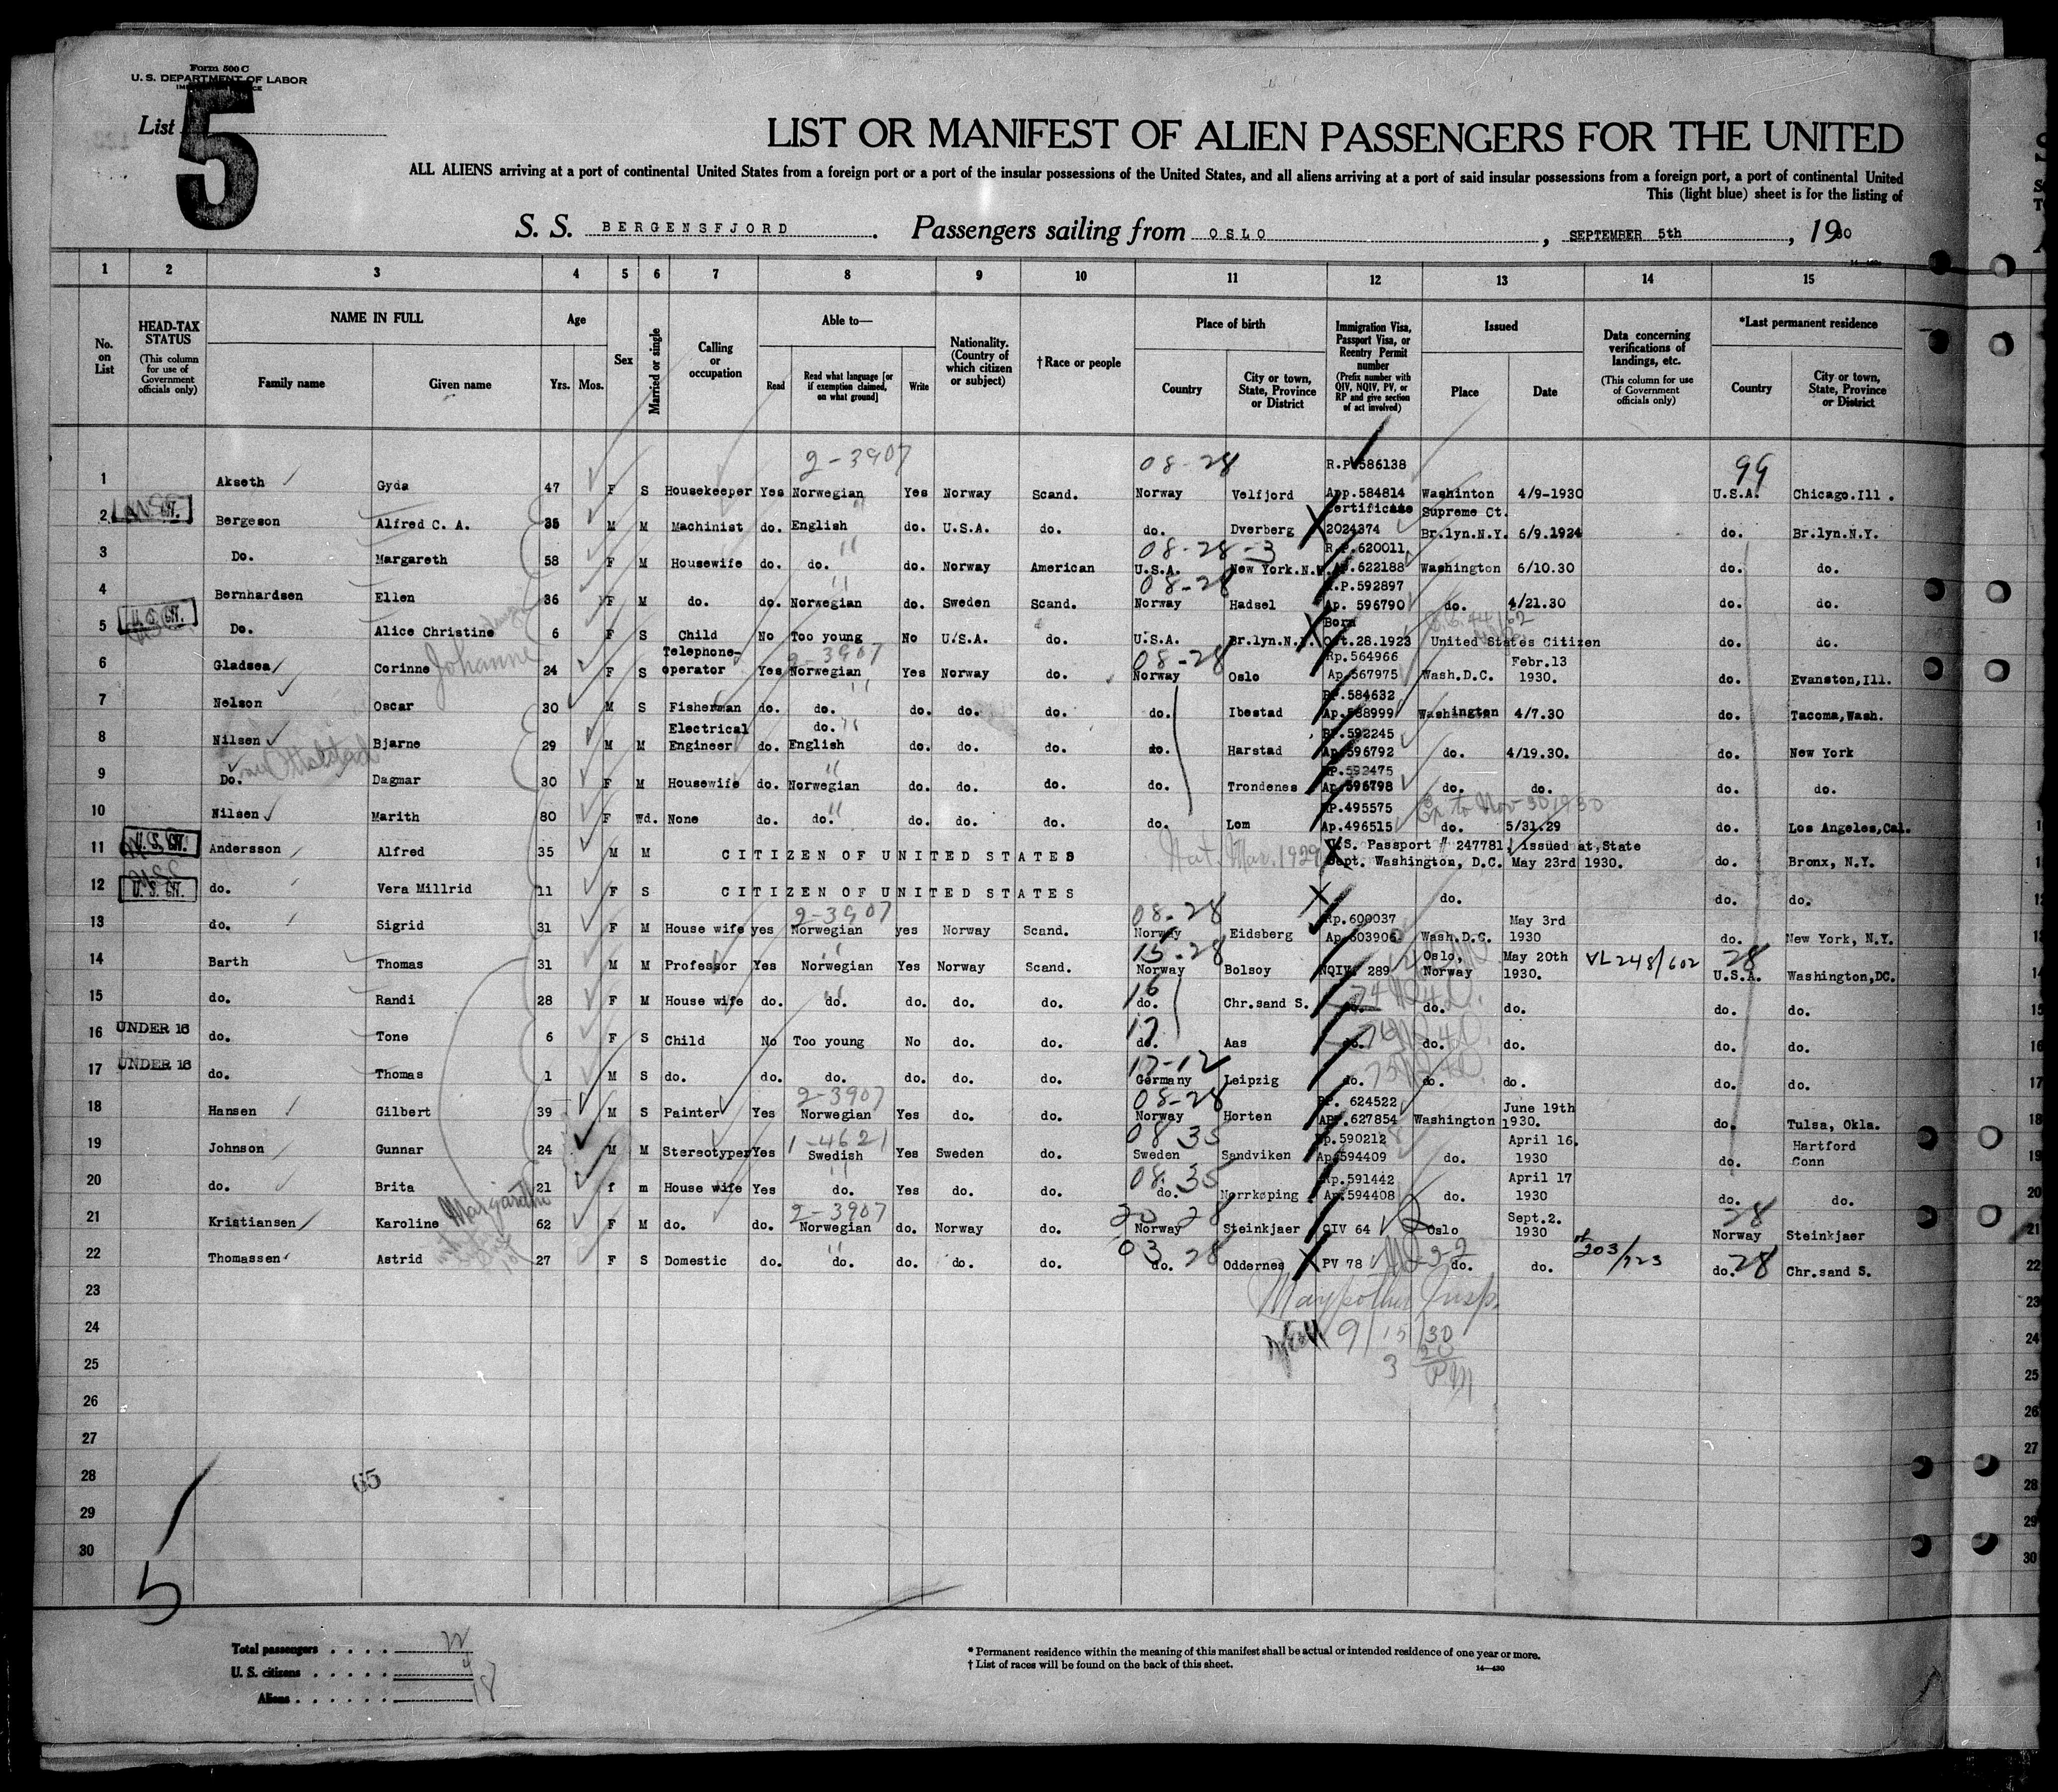 Form 500 C
U. S. DEPARTMENT OF LABOR
List 5
LIST OR MANIFEST OF ALIEN PASSENGERS FOR THE UNITED
ALL ALIENS arriving at a port of continental United States from a foreign port or a port of the insular possessions of the United States, and all aliens arriving at a port of said insular possessions from a foreign port, a port of continental United
This (light blue) sheet is for the listing of
S. S. BERGENSFJORD. Passengers sailing from OSLO, SEPTEMBER 5th, 1930
1 2 3 4 5 6 7 8 9 10 11 12 13 14 15
No. on List
HEAD-TAX STATUS (This column for use of Government officials only)
NAME IN FULL
Family name Given name
Age
Yrs. Mos.
Sex
Married or single
Calling or occupation
Able to—
Read Read what language [or if exemption claimed, on what ground] Write
Nationality. (Country of which citizen or subject)
†Race or people
Place of birth
Country City or town, State, Province or District
Immigration Visa, Passport Visa, or Reentry Permit number (Prefix number with QIV, NQIV, PV, or RP and give section of act involved)
Issued
Place Date
Data concerning verifications of landings, etc. (This column for use of Government officials only)
*Last permanent residence
Country City or town, State, Province or District
2-3907 08-28 R.P.586138 99
1 Akseth Gyda 47 F S Housekeeper Yes Norwegian Yes Norway Scand. Norway Velfjord App.584814 Washinton 4/9-1930 U.S.A. Chicago.Ill .
Certificate Supreme Ct.
2 Bergeson Alfred C. A. 35 M M Machinist do. English do. U.S.A. do. do. Dverberg 2024374 Br.lyn.N.Y. 6/9.1924 do. Br.lyn.N.Y.
08-28-3 R.P.620011
3 Do. Margareth 58 F M Housewife do. do. do. Norway American U.S.A. New York.N.Y. Ap.622188 Washington 6/10.30 do. do.
08-28 R.P.592897
4 Bernhardsen Ellen 36 F M do. do. Norwegian do. Sweden Scand. Norway Hadsel Ap. 596790 do. 4/21.30 do. do.
U. S. CIT. Born
5 Do. Alice Christine 6 F S Child No Too young No U.S.A. do. U.S.A. Br.lyn.N.Y. Oct.28.1923 United States Citizen do. do.
Johanne Telephone- 2-3907 08-28 Rp.564966 Febr.13
6 Gladsea Corinne 24 F S operator Yes Norwegian Yes Norway do. Norway Oslo Ap.567975 Wash.D.C. 1930. do. Evanston,Ill.
RP.584632
7 Nelson Oscar 30 M S Fisherman do. do. do. do. do. do. Ibestad Ap.588999 Washington 4/7.30 do. Tacoma,Wash.
Electrical do. RP.592245
8 Nilsen Bjarne 29 M M Engineer do. English do. do. do. do. Harstad Ap.596792 do. 4/19.30. do. New York
RP.592475
9 Do. Dagmar 30 F M Housewife do. Norwegian do. do. do. do. Trondenes Ap.596798 do. do. do. do.
RP.495575 Ex to Nov 30 1930
10 Nilsen Marith 80 F Wd. None do. do. do. do. do. do. Lom Ap.496515 do. 5/31.29 do. Los Angeles,Cal.
U.S. CIT. Nat. Mar. 1929 U.S. Passport # 247781, issued at,State
11 Andersson Alfred 35 M M CITIZEN OF UNITED STATES Dept. Washington, D.C. May 23rd 1930. do. Bronx, N.Y.
U. S. CIT.
12 do. Vera Millrid 11 F S CITIZEN OF UNITED STATES do. do. do.
2-3907 08-28 Rp.600037 May 3rd
13 do. Sigrid 31 F M House wife yes Norwegian yes Norway Scand. Norway Eidsberg Ap.603906 Wash.D.C. 1930 do. New York, N.Y.
15-28 Oslo, May 20th VL248/602 28
14 Barth Thomas 31 M M Professor Yes Norwegian Yes Norway Scand. Norway Bolsoy NQIV. 289 Norway 1930. U.S.A. Washington,DC.
16
15 do. Randi 28 F M House wife do. do. do. do. do. do. Chr.sand S. do. do. do. do. do.
UNDER 16 17
16 do. Tone 6 F S Child No Too young No do. do. do. Aas do. do. do. do. do.
UNDER 16 17-12
17 do. Thomas 1 M S do. do. do. do. do. do. Germany Leipzig do. do. do. do. do.
2-3907 08-28 RP. 624522 June 19th
18 Hansen Gilbert 39 M S Painter Yes Norwegian Yes do. do. Norway Horten APP.627854 Washington 1930. do. Tulsa, Okla.
1-4621 08 35 Rp.590212 April 16. Hartford
19 Johnson Gunnar 24 M M Stereotyper Yes Swedish Yes Sweden do. Sweden Sandviken Ap.594409 do. 1930 do. Conn
08.35 Rp.591442 April 17
20 do. Brita 21 f m House wife Yes do. Yes do. do. do. Norrkøping Ap.594408 do. 1930 do. do.
Margarethe 2-3907 20 28 Sept.2. 28
21 Kristiansen Karoline 62 F M do. do. Norwegian do. Norway do. Norway Steinkjaer QIV 64 Oslo 1930 Norway Steinkjaer
03 28 203/723 28
22 Thomassen Astrid 27 F S Domestic do. do. do. do. do. do. Oddernes PV 78 do. do. do. Chr.sand S.
23
24 9/15/30
25 3 20 PM
26
27
28 65
29
30
5
Total passengers . . . . 22
U. S. citizens . . . . . 4
Aliens . . . . . . 18
* Permanent residence within the meaning of this manifest shall be actual or intended residence of one year or more.
† List of races will be found on the back of this sheet.
14—430